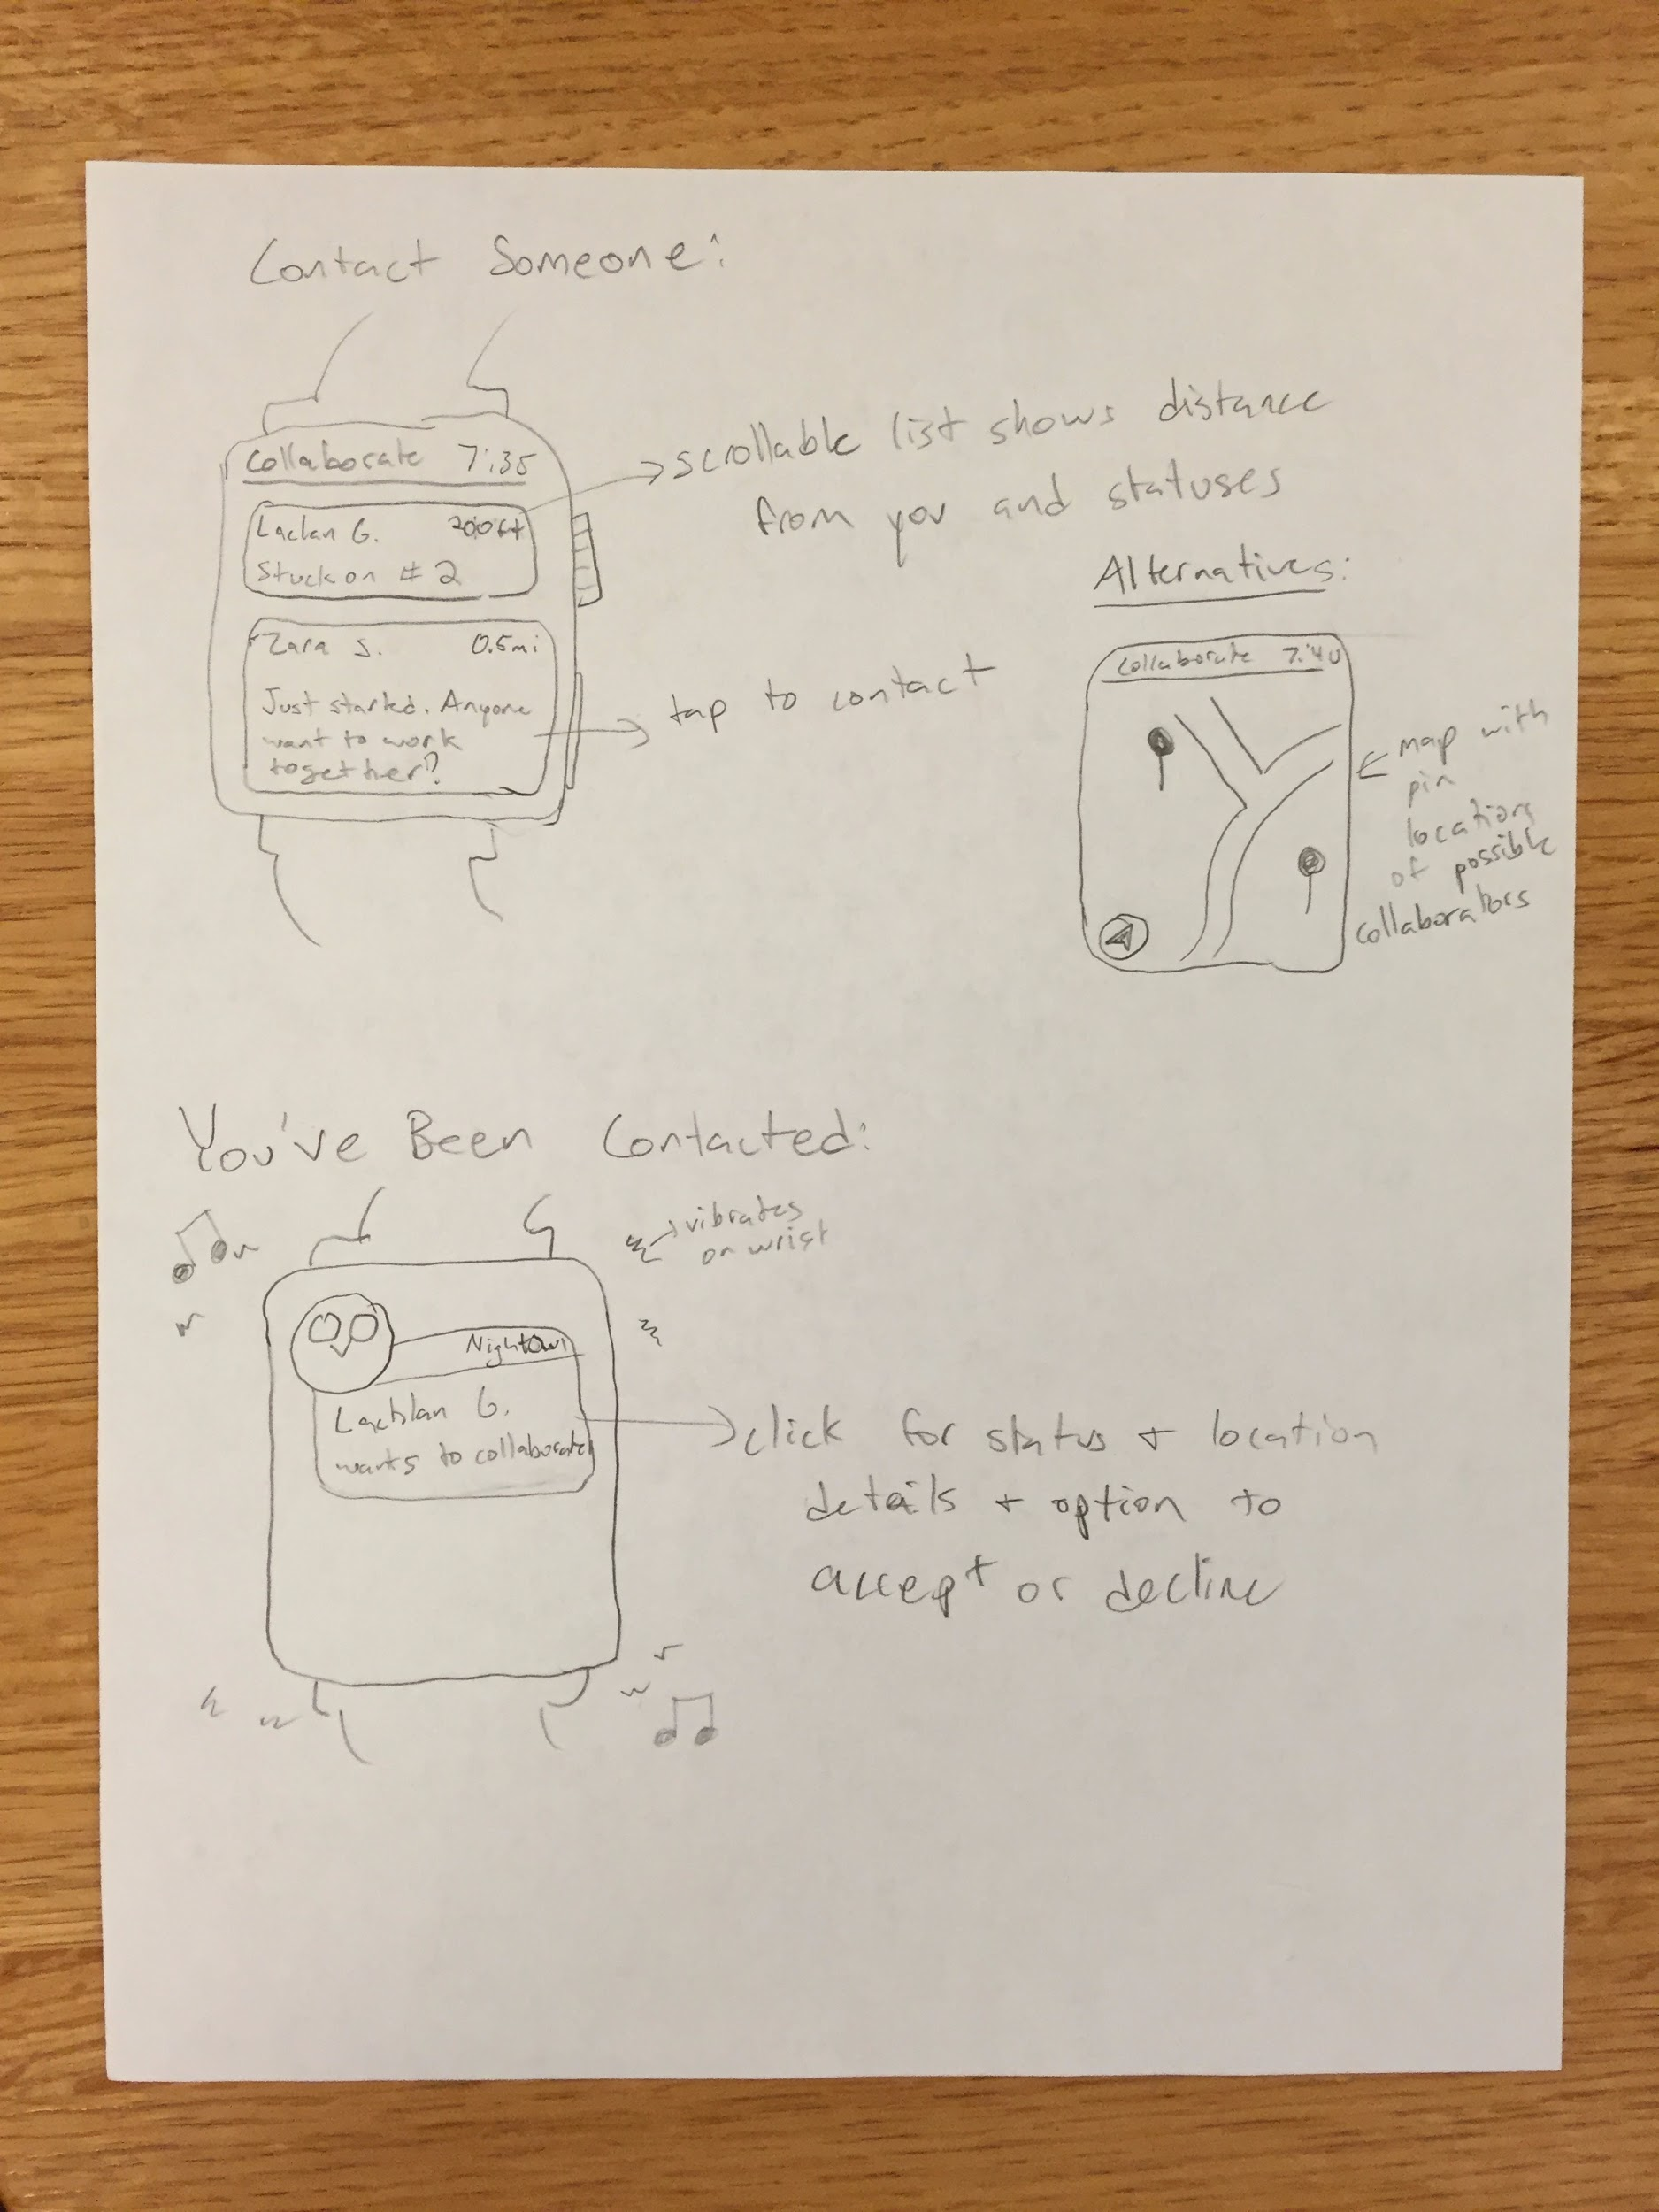 Contact Someone:
Collaborate 7:35
Laclan G. 200ft
Stuck on #2
Zara S. 0.5mi
Just started. Anyone
want to work
together?
→ scrollable list shows distance
from you and statuses
→ tap to contact
Alternatives:
Collaborate 7:40
← map with
pin
locations
of possible
collaborators
You've Been Contacted:
→ vibrates
on wrist
NightOwl
Lachlan G.
wants to collaborate
→ click for status + location
details + option to
accept or decline